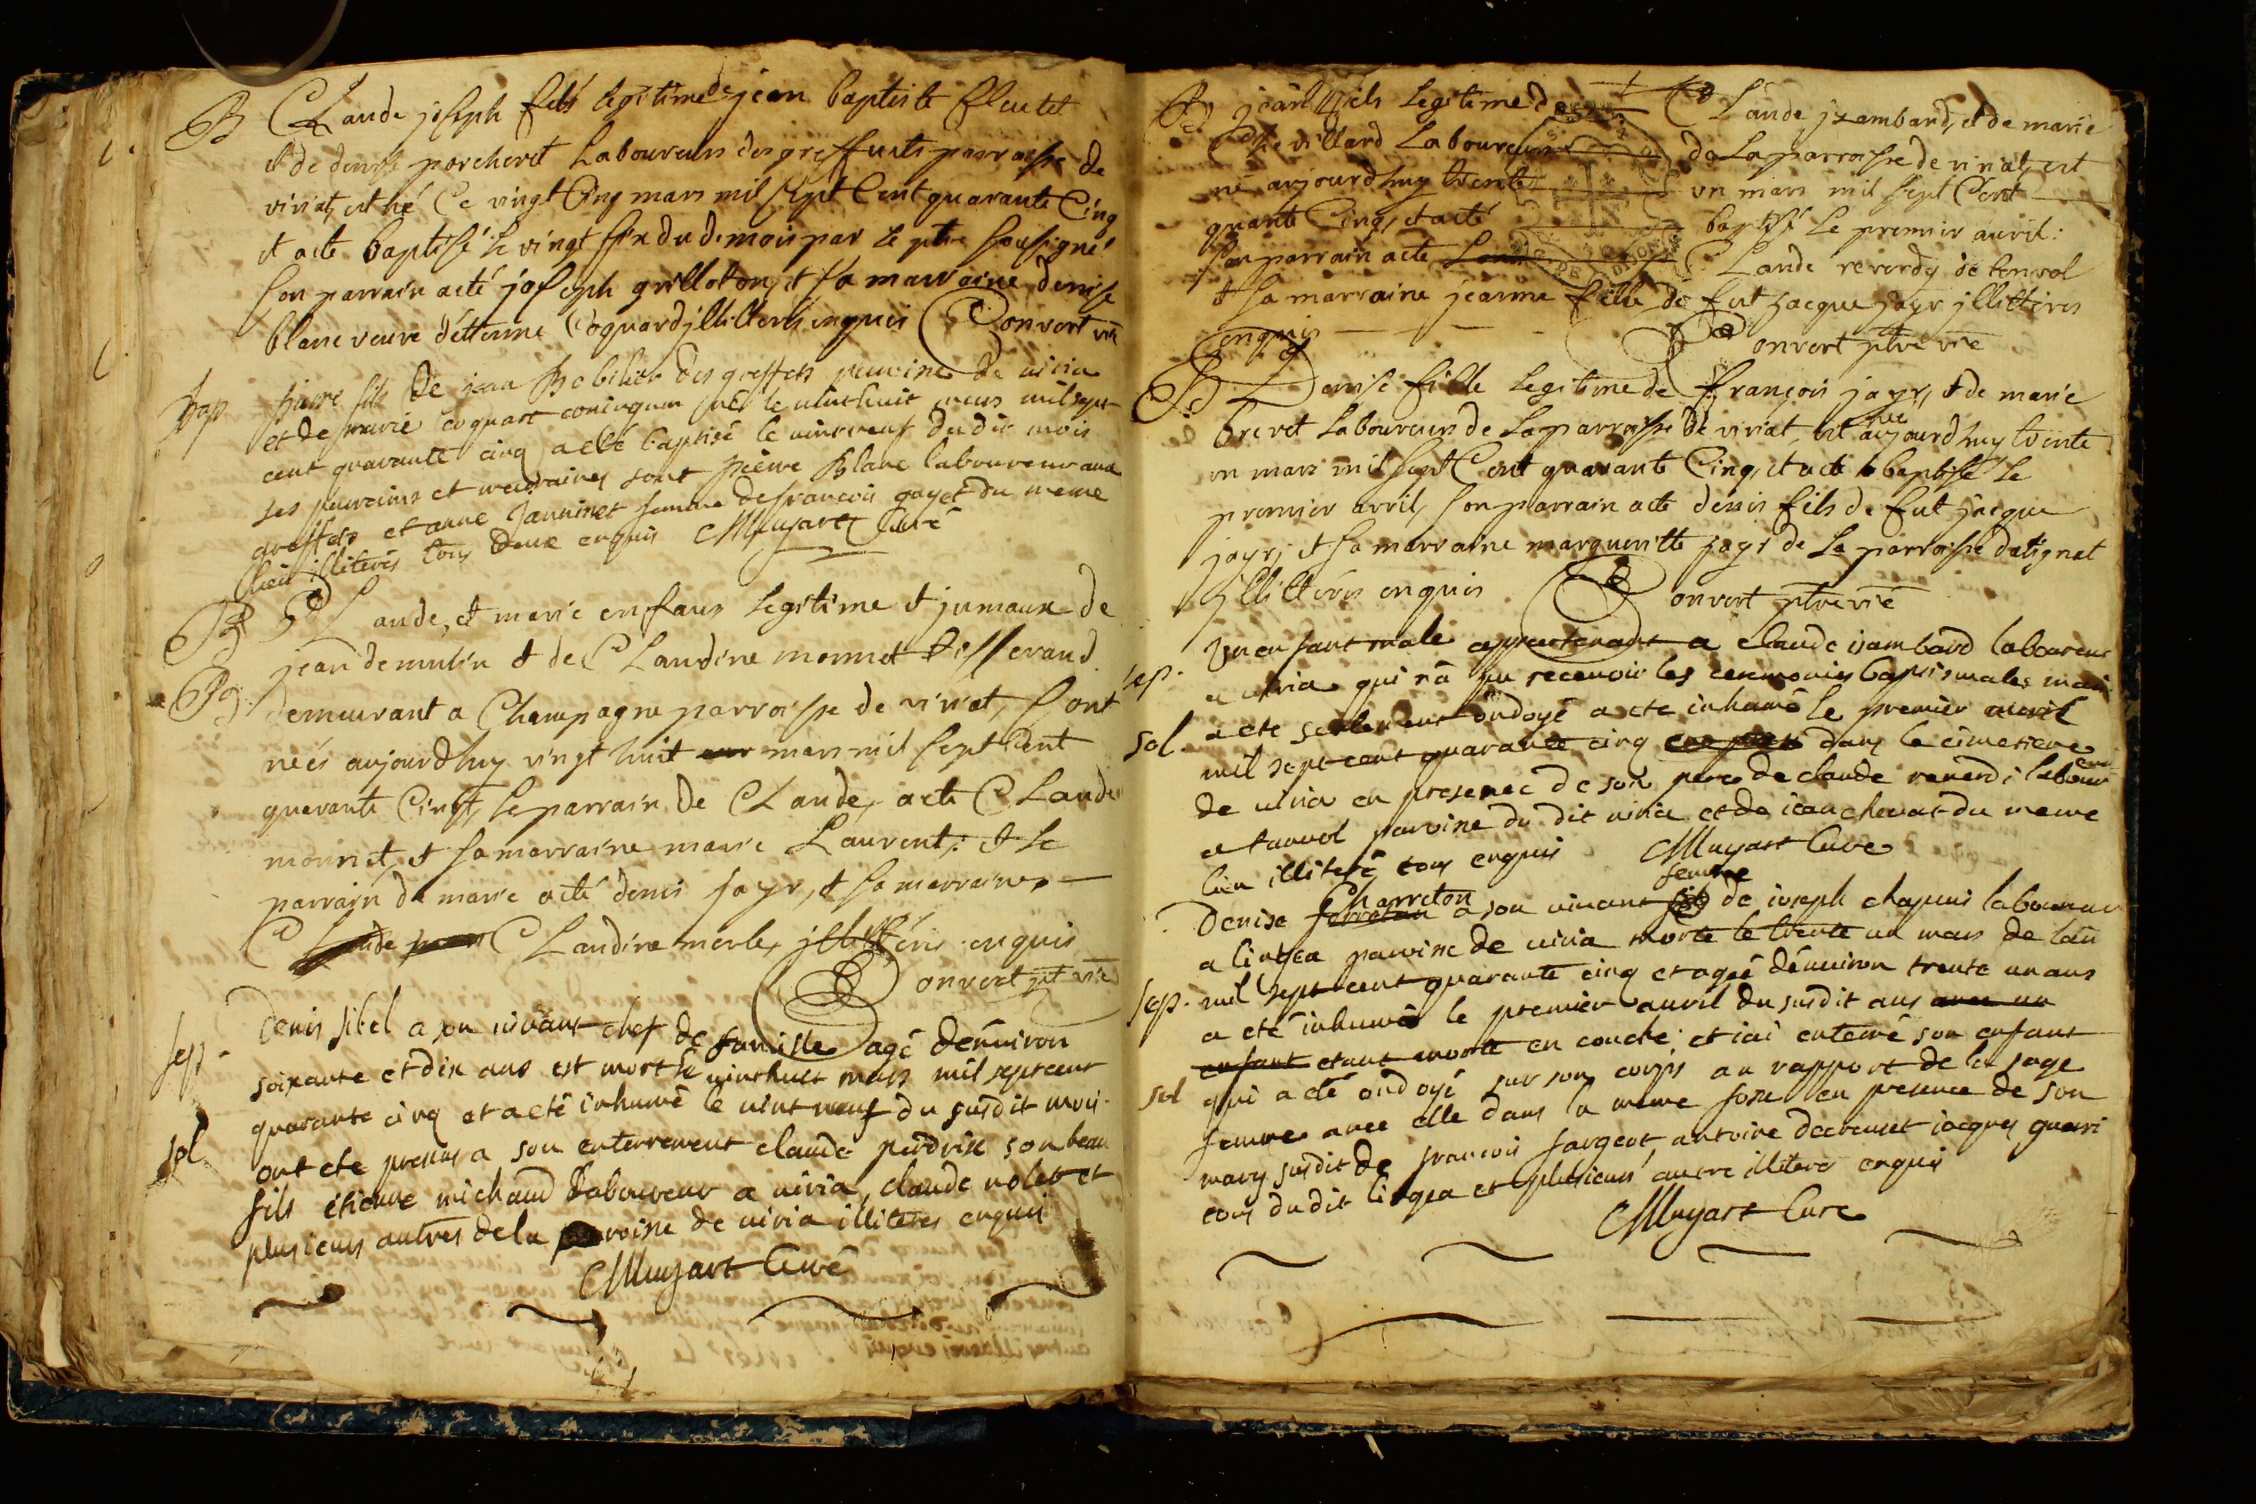 B Claude joseph fils legitime de jean baptiste fleutet
et de denise porcheret Laboureurs des greffets parroisse de
viriat, est né Ce vingt Cinq mars mil sept Cent quarante Cinq
et a eté baptisé le vingt six du d. mois par le ptre soussigné
son parrain a eté joseph grilloton, et sa marraine denise
blanc veuve d'éttienne Coquard jllitterés enquis Convert vic
bap pierre fils de jean Robilier des greffets parroisse de viria
et de marie Coquart coniugum né le vinthuit mars mil sept
cent quarante cinq a eté baptisé le vintneuf du dit mois
ses parrains et marraines sont pierre Blanc laboureur aux
greffets et anne Janninet femme de francois gayet du meme
lieu illiterés tous deux enquis CMuyart Curé
B Claude, et marie enfans legitime et jumaux de
jean demulin et de Claudine monnet tisserand
B demeurant a Champagne parroisse de viriat, sont
néés aujourdhuy vingt huit mars mil sept Cent
quarante Cinq, le parrain de Claude, a eté Claude
monnet, et sa marraine marie Laurent; et le
parrain de marie a eté denis jayr, et sa marraine
Claudine merle, jllitterés enquis
Convert pt vic
sep. Denis sibel a son vivant chef de famille agé d'environ
soixante et dix ans est mort le vinthuit mars mil sept cent
quarante cinq et a eté inhumé le vint neuf du susdit mois
sol ont eté presens a son enterrement claude perdrix son beau
fils étienne michaud laboureur a viria, claude nolet et
plusieurs autres de la parroisse de viria illiteres enquis
CMuyart Curé
B jean fils legitime de Claude jzambard, et de marie
villard Laboureurs de La parroisse de viriat, est
né aujourdhuy trente un mars mil sept Cent
quarante Cinq, et a eté baptisé Le premier auvril:
son parrain a eté Claude reverdy de tanvol
et sa marraine jeanne fille de fut jacque jayr jllitterés
enquis Convert ptre vic
B Denise fille legitime de françois jayr, et de marie
brevet Laboureurs de La parroisse de viriat, est née aujourdhuy trente
un mars mil sept Cent quarante Cinq, et a eté baptisé le
premier avril, son parrain a eté denis fils de fut jacque
jayr, et sa marraine margueritte jayr de La parroisse datignat
jllitterés enquis Convert ptre vic
sep. Un enfant male appartenant a Claude isambard laboureur
a viria qui n'a pu recevoir les ceremonies baptismales mais
a eté seulement ondoyé a eté inhumé le premier avril
sol mil sept cent quarante cinq dans le cimetiere
de viria en presence de son pere de claude reverdi laboureur
a tanvol parroisse du dit viria et de jean chevat du meme
lieu illiteré tous enquis CMuyart Curé
Denise Charreton a son vivant femme de joseph chapuis laboureur
a lingea parroisse de viria morte le trente un mars de lan
sep. mil sept cent quarante cinq et agéé d'environ trente un ans
a eté inhumée le premier auvril du susdit ans avec un
enfant etant morte en couche et iai enterré son enfant
sol qui a eté ondoyé sur son corps au rapport de la sage
femme avec elle dans la meme fosse en presence de son
mary susdit de francois fargeot, antoine decreuset jacques guerri
tous du dit lingea et plusieurs autre illiteré enquis
CMuyart Cure